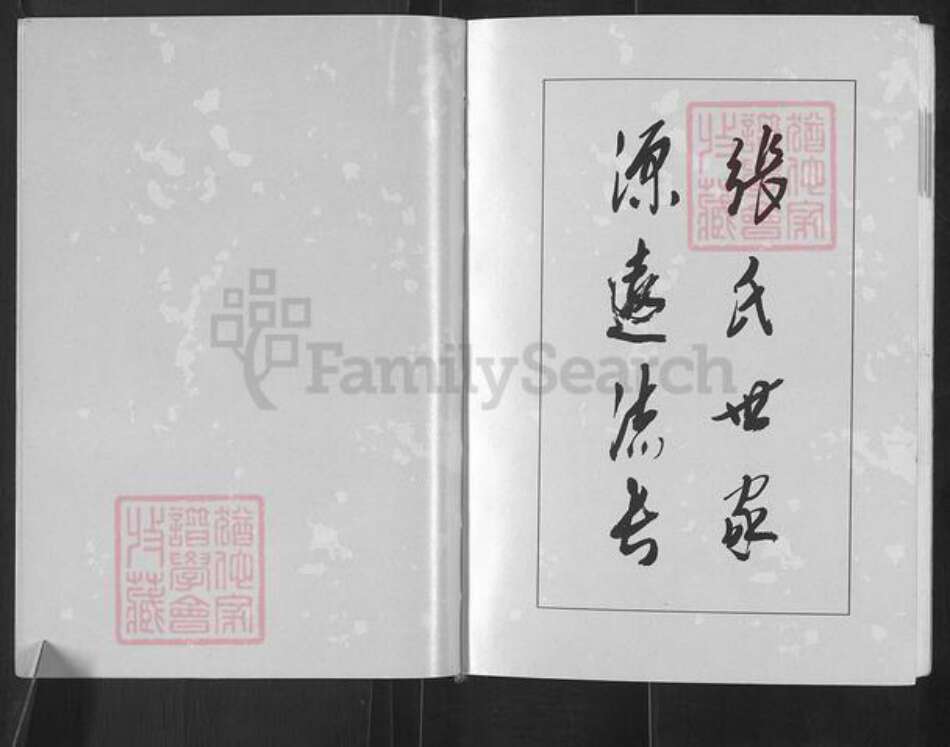 張氏世家
源遠流長
猶他家
譜學會
特藏
FamilySearch
猶他家
譜學會
特藏